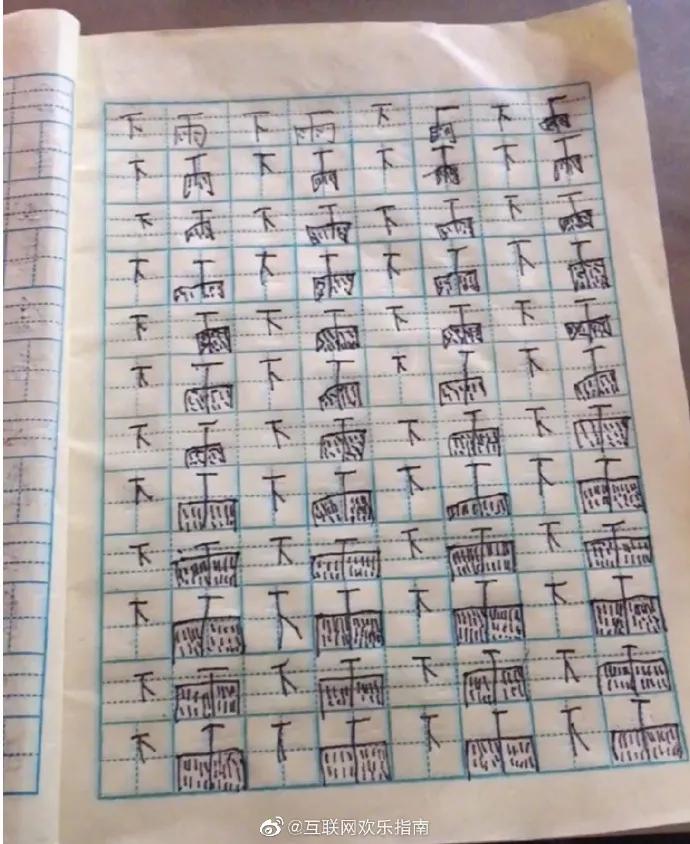 下雨下雨下雨下雨
下雨下雨下雨下雨
下雨下雨下雨下雨
下雨下雨下雨下雨
下雨下雨下雨下雨
下雨下雨下雨下雨
下雨下雨下雨下雨
下雨下雨下雨下雨
下雨下雨下雨下雨
下雨下雨下雨下雨
下雨下雨下雨下雨
下雨下雨下雨下雨
@互联网欢乐指南